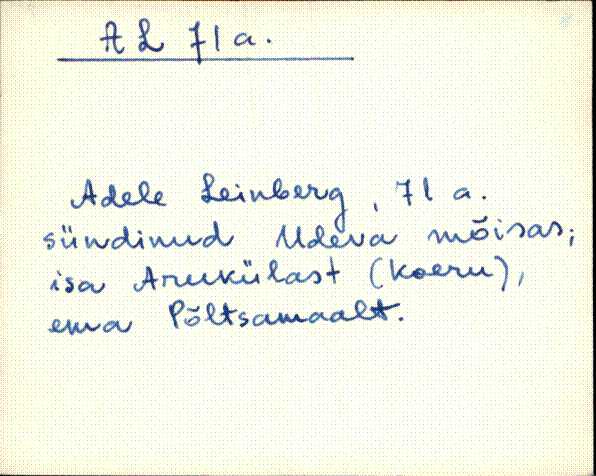 AL 71 a.
Adele Leinberg, 71 a.
sündinud Udeva mõisas;
isa Arukülast (Koeru),
ema Põltsamaalt.